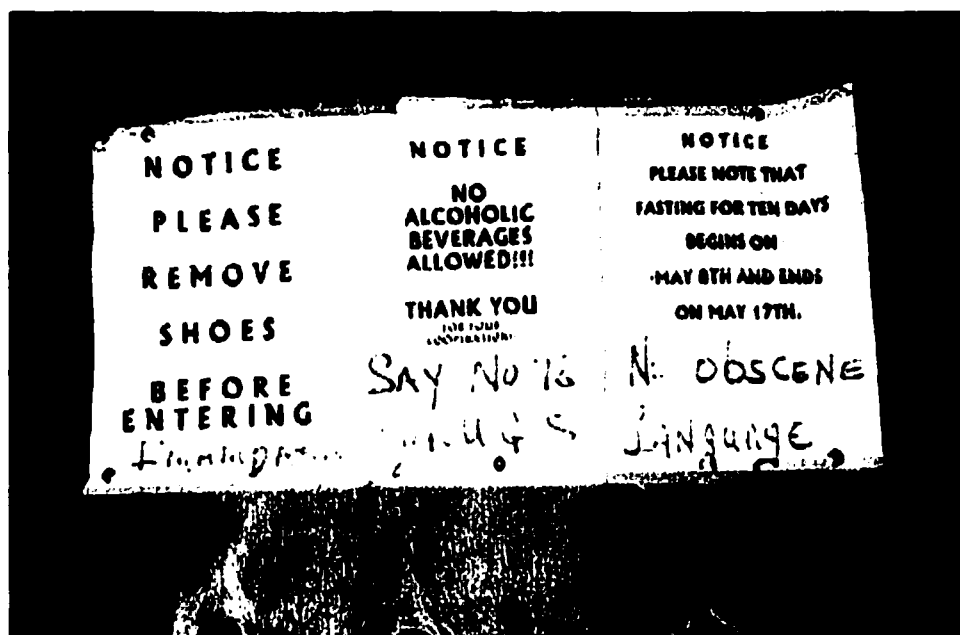 NOTICE
PLEASE
REMOVE
SHOES
BEFORE
ENTERING
NOTICE
NO
ALCOHOLIC
BEVERAGES
ALLOWED!!!
THANK YOU
FOR YOUR
COOPERATION!
SAY NO TO
NOTICE
PLEASE NOTE THAT
FASTING FOR TEN DAYS
BEGINS ON
MAY 8TH AND ENDS
ON MAY 17TH.
No OBSCENE
LANGUAGE